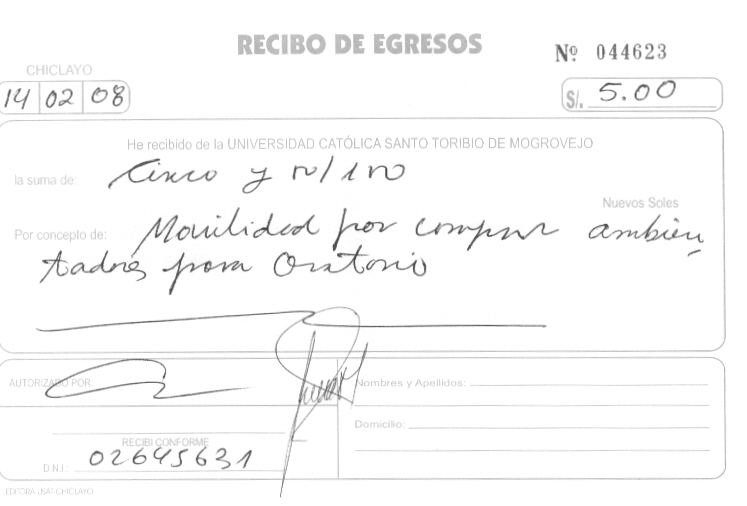 RECIBO DE EGRESOS
Nº 044623
CHICLAYO
14 02 08
S/. 5.00
He recibido de la UNIVERSIDAD CATÓLICA SANTO TORIBIO DE MOGROVEJO
la suma de: Cinco y 00/100
Nuevos Soles
Por concepto de: Movilidad por comprar ambien
tadores para Oratorio
AUTORIZADO POR:
Nombres y Apellidos:
Domicilio:
RECIBI CONFORME
D.N.I.: 02645631
EDITORA USAT-CHICLAYO